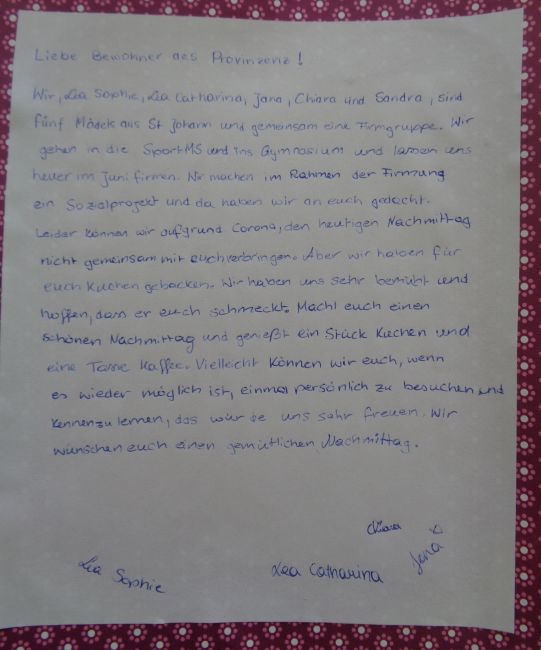 Liebe Bewohner des Provinzenz!
Wir, Lea Sophie, Lea Catharina, Jana, Chiara und Sandra, sind
fünf Mädels aus St Johann und gemeinsam eine Firmgruppe. Wir
gehen in die SportMS und ins Gymnasium und lassen uns
heuer im Juni firmen. Wir machen im Rahmen der Firmung
ein Sozialprojekt und da haben wir an euch gedacht.
Leider können wir aufgrund Corona, den heutigen Nachmittag
nicht gemeinsam mit euch verbringen. Aber wir haben für
euch Kuchen gebacken. Wir haben uns sehr bemüht und
hoffen, dass er euch schmeckt. Macht euch einen
schönen Nachmittag und genießt ein Stück Kuchen und
eine Tasse Kaffee. Vielleicht können wir euch, wenn
es wieder möglich ist, einmal persönlich zu besuchen und
kennenzulernen, das würde uns sehr freuen. Wir
wünschen euch einen gemütlichen Nachmittag.
Chiara
Lea Sophie
Lea Catharina
Jana